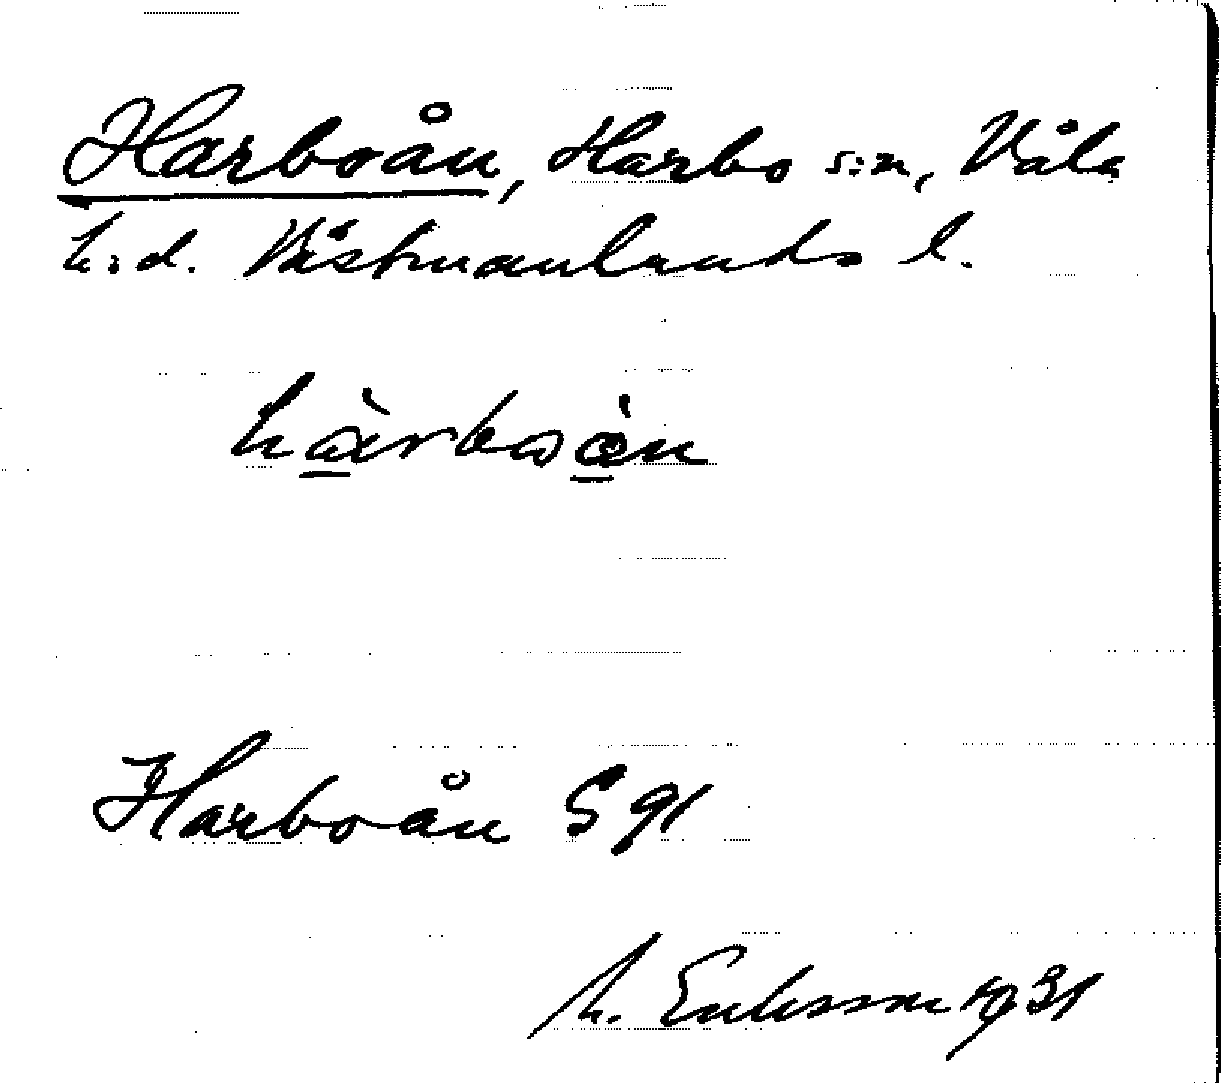 Harboån, Harbo s:n, Våla
h:d. Västmanlands l.
Harboån S 91
Eriksson 1931